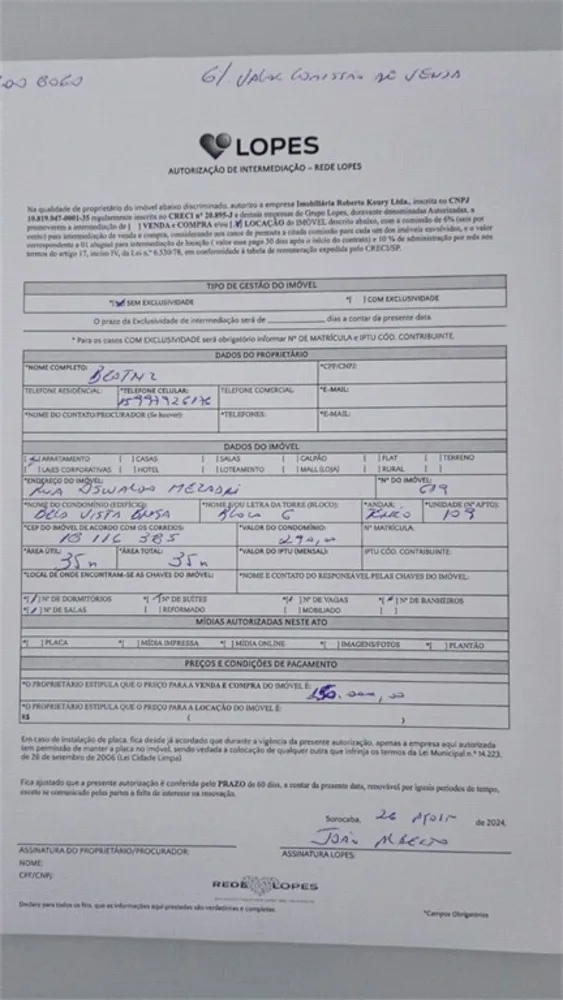 DO BOGO
6/. VALOR COMISSÃO DE VENDA
LOPES
AUTORIZAÇÃO DE INTERMEDIAÇÃO – REDE LOPES
Na qualidade de proprietário do imóvel abaixo discriminado, autorizo a empresa Imobiliária Roberta Koury Ltda., inscrita no CNPJ
10.819.047-0001-35 regularmente inscrita no CRECI nº 20.895-J e demais empresas do Grupo Lopes, doravante denominadas Autorizadas, a
promoverem a intermediação de [ ] VENDA e COMPRA e/ou [X] LOCAÇÃO do IMÓVEL descrito abaixo, com a comissão de 6% (seis por
cento) para intermediação de venda e compra, considerando nos casos de permuta a citada comissão para cada um dos imóveis envolvidos, e o valor
correspondente a 01 aluguel para intermediação de locação ( valor esse pago 30 dias após o início do contrato) e 10 % de administração por mês nos
termos do artigo 17, inciso IV, da Lei n.º 6.530/78, em conformidade à tabela de remuneração expedida pelo CRECI/SP.
TIPO DE GESTÃO DO IMÓVEL
*[X] SEM EXCLUSIVIDADE *[ ] COM EXCLUSIVIDADE
O prazo da Exclusividade de intermediação será de ____ dias a contar da presente data.
* Para os casos COM EXCLUSIVIDADE será obrigatório informar Nº DE MATRÍCULA e IPTU CÓD. CONTRIBUINTE.
DADOS DO PROPRIETÁRIO
*NOME COMPLETO: *CPF/CNPJ:
TELEFONE RESIDENCIAL: *TELEFONE CELULAR: TELEFONE COMERCIAL: *E-MAIL:
15997926176
*NOME DO CONTATO/PROCURADOR (Se houver): *TELEFONES: *E-MAIL:
DADOS DO IMÓVEL
[X] APARTAMENTO [ ] CASAS [ ] SALAS [ ] GALPÃO [ ] FLAT [ ] TERRENO
[ ] LAJES CORPORATIVAS [ ] HOTEL [ ] LOTEAMENTO [ ] MALL (LOJA) [ ] RURAL [ ]
*ENDEREÇO DO IMÓVEL: *Nº DO IMÓVEL:
RUA OSWALDO MEZADRI 619
*NOME DO CONDOMÍNIO (EDIFÍCIO): *NOME E/OU LETRA DA TORRE (BLOCO): *ANDAR: *UNIDADE (Nº APTO):
BELA VISTA BLOCO 6 109
*CEP DO IMÓVEL DE ACORDO COM OS CORREIOS: *VALOR DO CONDOMÍNIO: Nº MATRÍCULA:
18 116 385 290,00
*ÁREA ÚTIL: *ÁREA TOTAL: *VALOR DO IPTU (MENSAL): IPTU CÓD. CONTRIBUINTE:
35 m 35 m
*LOCAL DE ONDE ENCONTRAM-SE AS CHAVES DO IMÓVEL: *NOME E CONTATO DO RESPONSÁVEL PELAS CHAVES DO IMÓVEL:
*[1] Nº DE DORMITÓRIOS *[ ] Nº DE SUÍTES *[ ] Nº DE VAGAS *[ ] Nº DE BANHEIROS
*[1] Nº DE SALAS [ ] REFORMADO [ ] MOBILIADO [ ]
MÍDIAS AUTORIZADAS NESTE ATO
*[ ] PLACA *[ ] MÍDIA IMPRESSA *[ ] MÍDIA ONLINE *[ ] IMAGENS/FOTOS *[ ] PLANTÃO
PREÇOS E CONDIÇÕES DE PAGAMENTO
*O PROPRIETÁRIO ESTIPULA QUE O PREÇO PARA A VENDA E COMPRA DO IMÓVEL É:
150.000,00
*O PROPRIETÁRIO ESTIPULA QUE O PREÇO PARA A LOCAÇÃO DO IMÓVEL É:
R$ ( )
Em caso de instalação de placa, fica desde já acordado que durante a vigência da presente autorização, apenas a empresa aqui autorizada
tem permissão de manter a placa no imóvel, sendo vedada a colocação de qualquer outra que infrinja os termos da Lei Municipal n.º 14.223,
de 26 de setembro de 2006 (Lei Cidade Limpa)
Fica ajustado que a presente autorização é conferida pelo PRAZO de 60 dias, a contar da presente data, renovável por iguais períodos de tempo,
exceto se comunicado pelas partes a falta de interesse na renovação.
Sorocaba, 26 AGOST de 2024.
JOÃO ALBERTO
ASSINATURA DO PROPRIETÁRIO/PROCURADOR: ASSINATURA LOPES:
NOME:
CPF/CNPJ:
REDE LOPES
Declaro para todos os fins, que as informações aqui prestadas são verdadeiras e completas. *Campos Obrigatórios